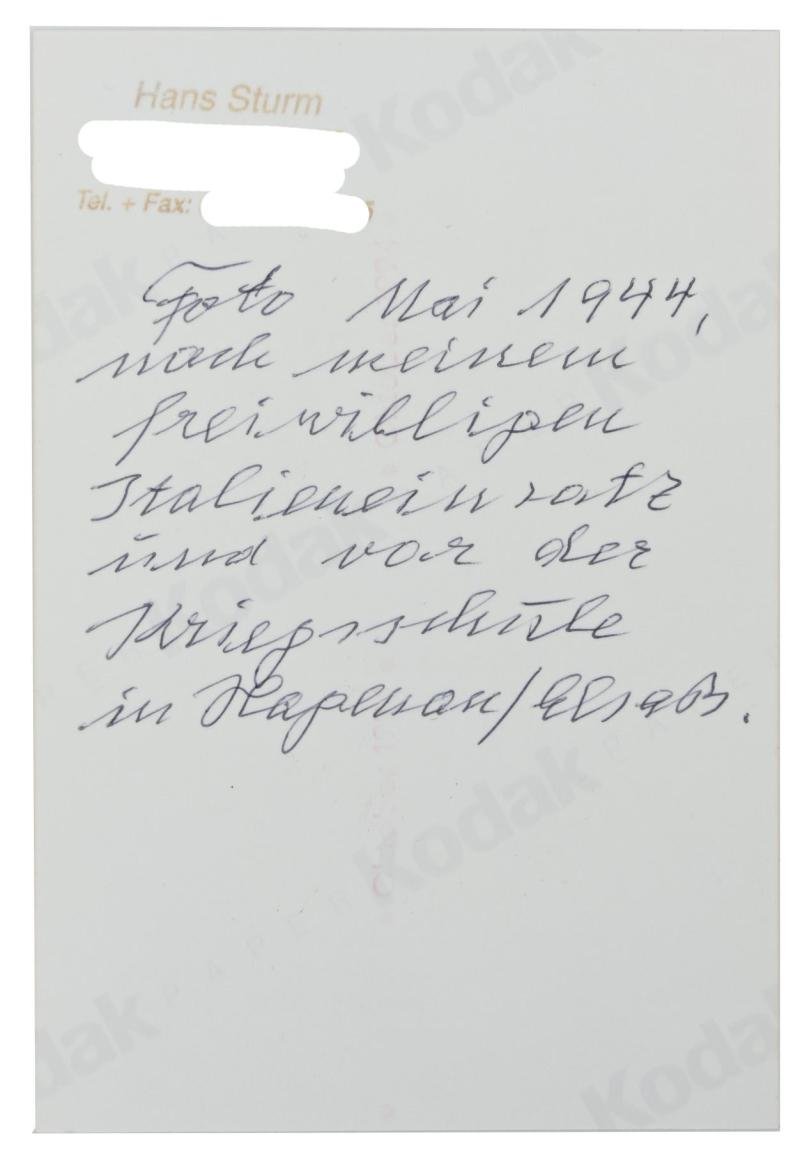 Hans Sturm
Tel. + Fax: 5
Foto Mai 1944,
nach meinem
freiwilligen
Italieneinsatz
und vor der
Kriegsschule
in Hagenau/Elsaß.
Kodak
Kodak
Kodak
Kodak
Kodak
Kodak
PAPER